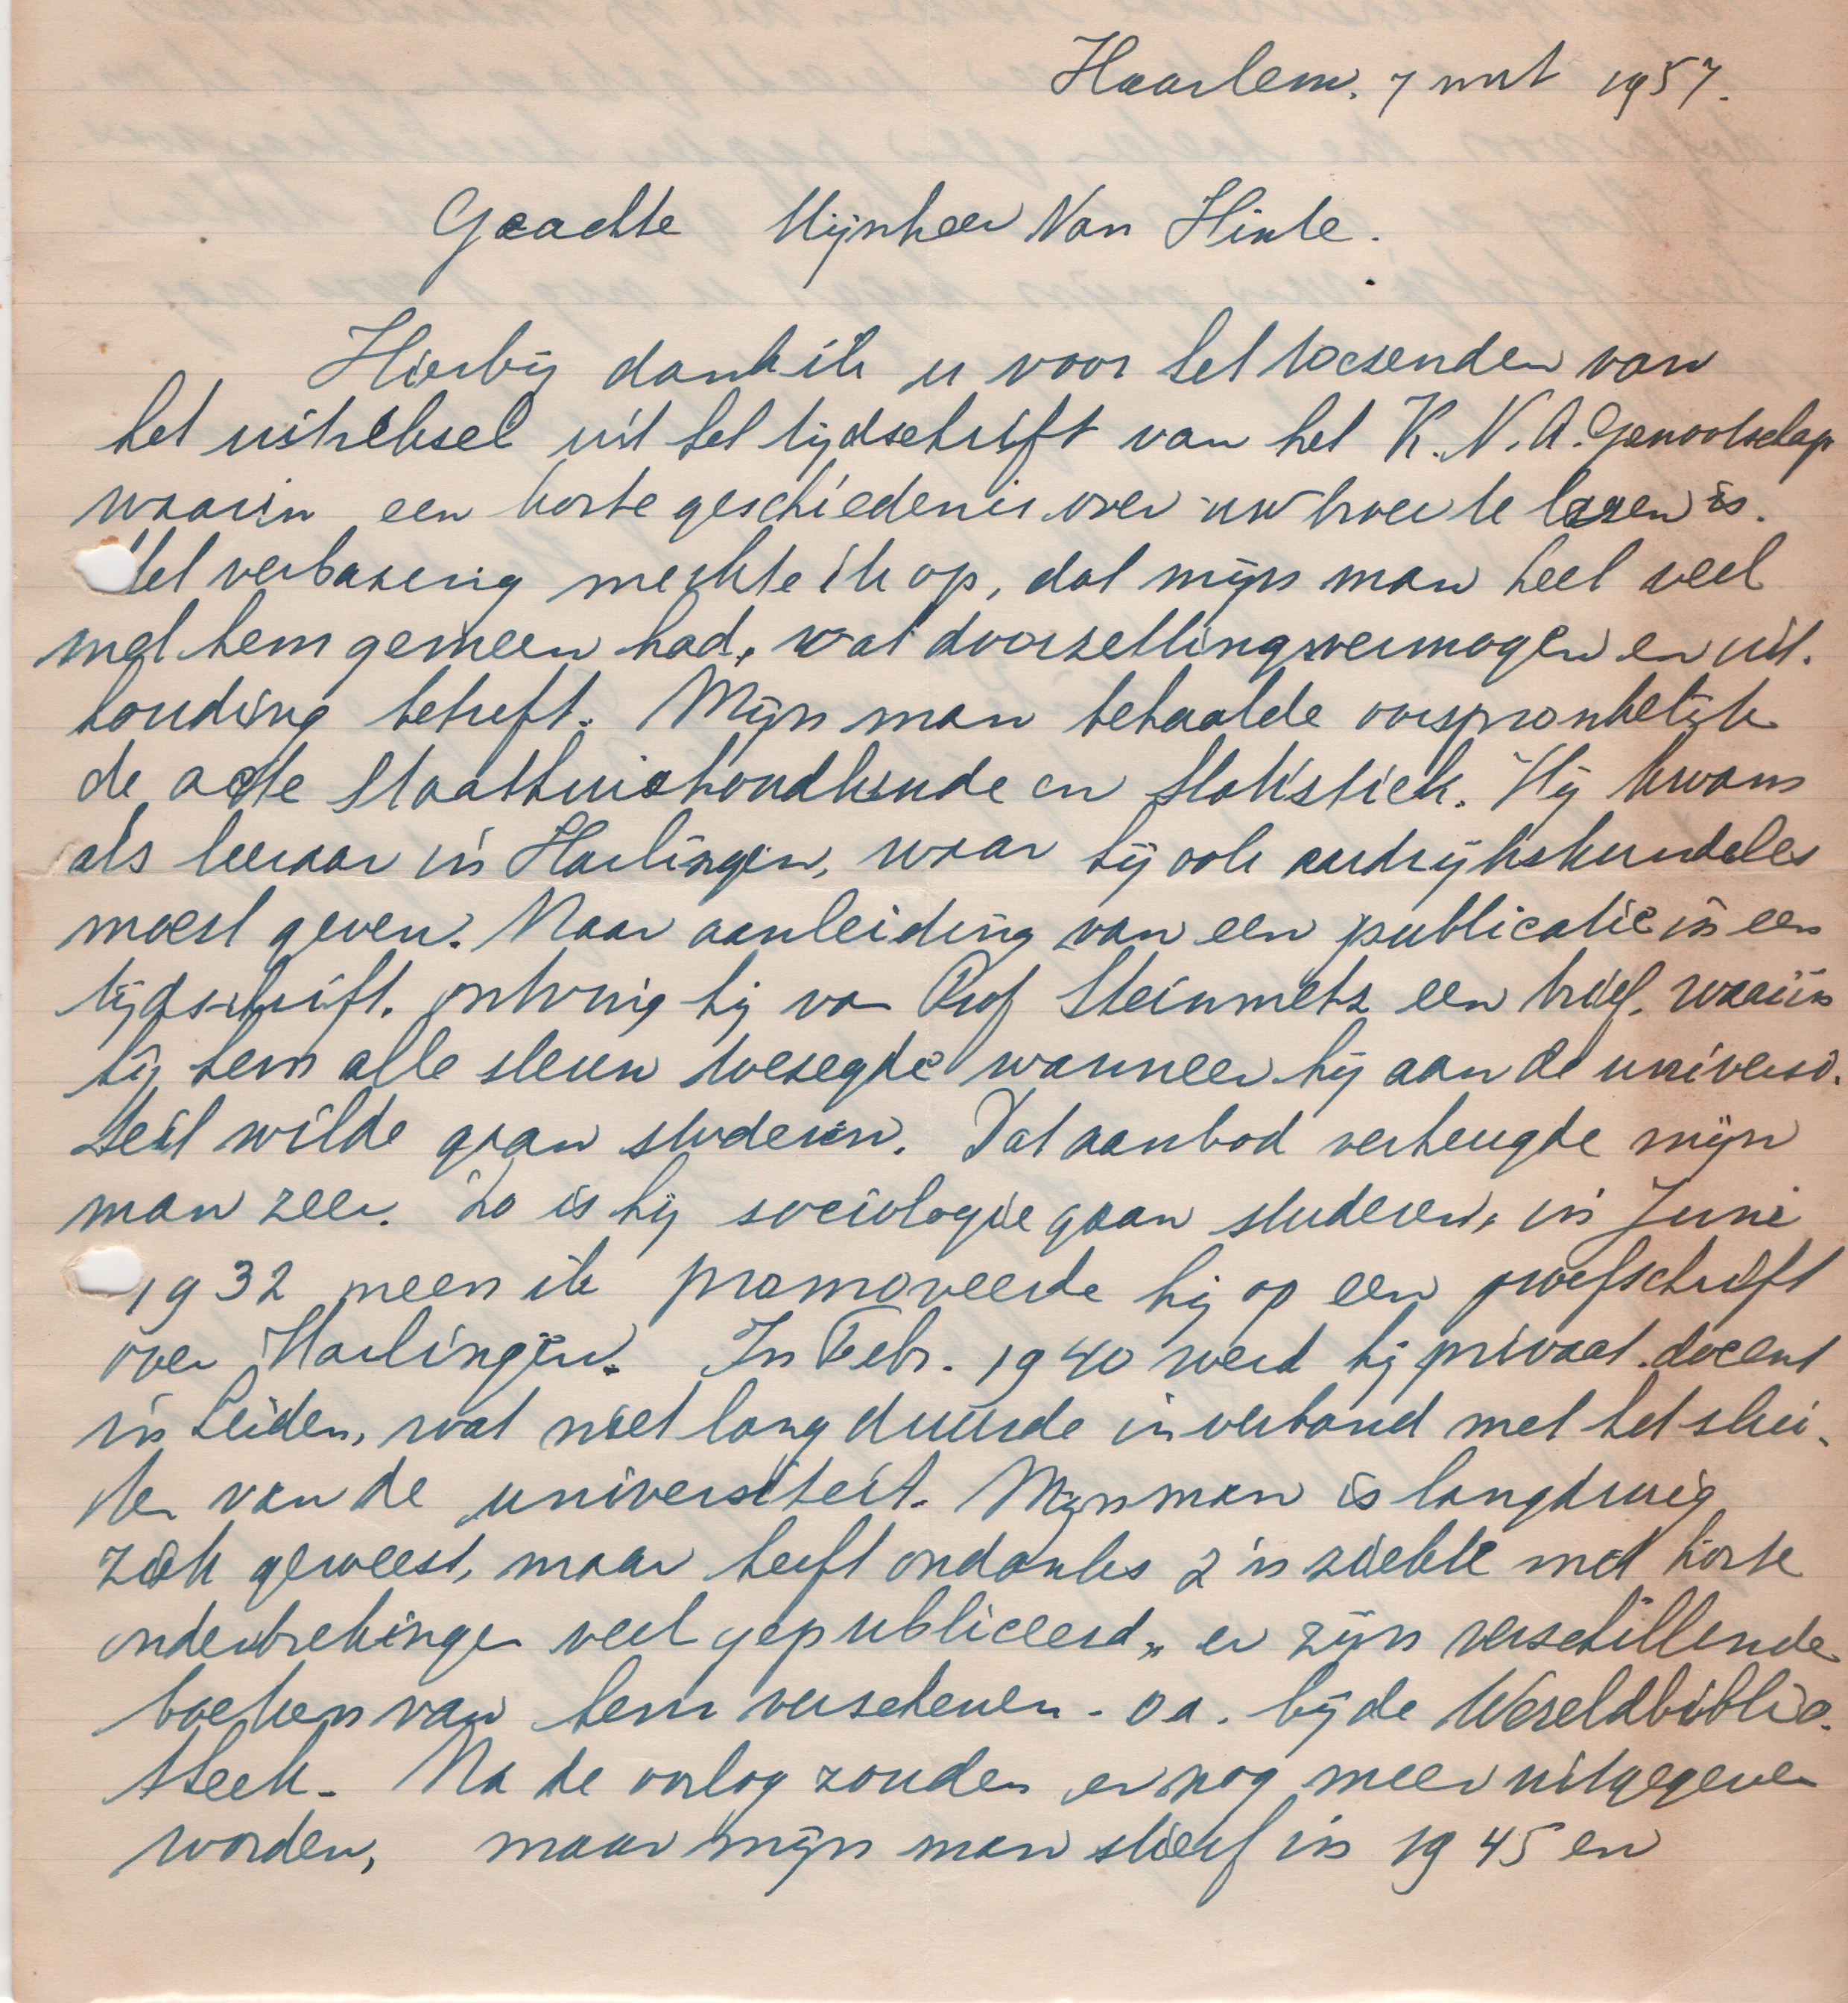 Haarlem. 7 mrt 1957.
Geachte Mijnheer Van Hinte.
Hierbij dank ik u voor het toezenden van
het uittreksel uit het tijdschrift van het K.N.A. Genootschap
waarin een korte geschiedenis over uw broer te lezen is.
Met verbazing merkte ik op, dat mijn man heel veel
met hem gemeen had, wat doorzettingsvermogen en uit-
houding betreft. Mijn man behaalde oorspronkelijk
de acte Staathuishoudkunde en Statistiek. Hij kwam
als leeraar in Harlingen, waar hij ook aardrijkskundeles
moest geven. Naar aanleiding van een publicatie in een
tijdschrift, ontving hij van Prof Steinmetz een brief, waarin
hij hem alle steun toezegde wanneer hij aan de universi-
teit wilde gaan studeren. Dat aanbod verheugde mijn
man zeer. Zo is hij sociologie gaan studeren, in Juni
1932 meen ik promoveerde hij op een proefschrift
over Harlingen. In Febr. 1940 werd hij privaat-docent
in Leiden, wat niet lang duurde in verband met het slui-
ten van de universiteit. Mijn man is langdurig
ziek geweest, maar heeft ondanks z'n ziekte met korte
onderbrekingen veel gepubliceerd, er zijn verschillende
boeken van hem verschenen - o.a. bij de Wereldbiblio-
theek. Na de oorlog zouden er nog meer uitgegeven
worden, maar mijn man stierf in 1945 en